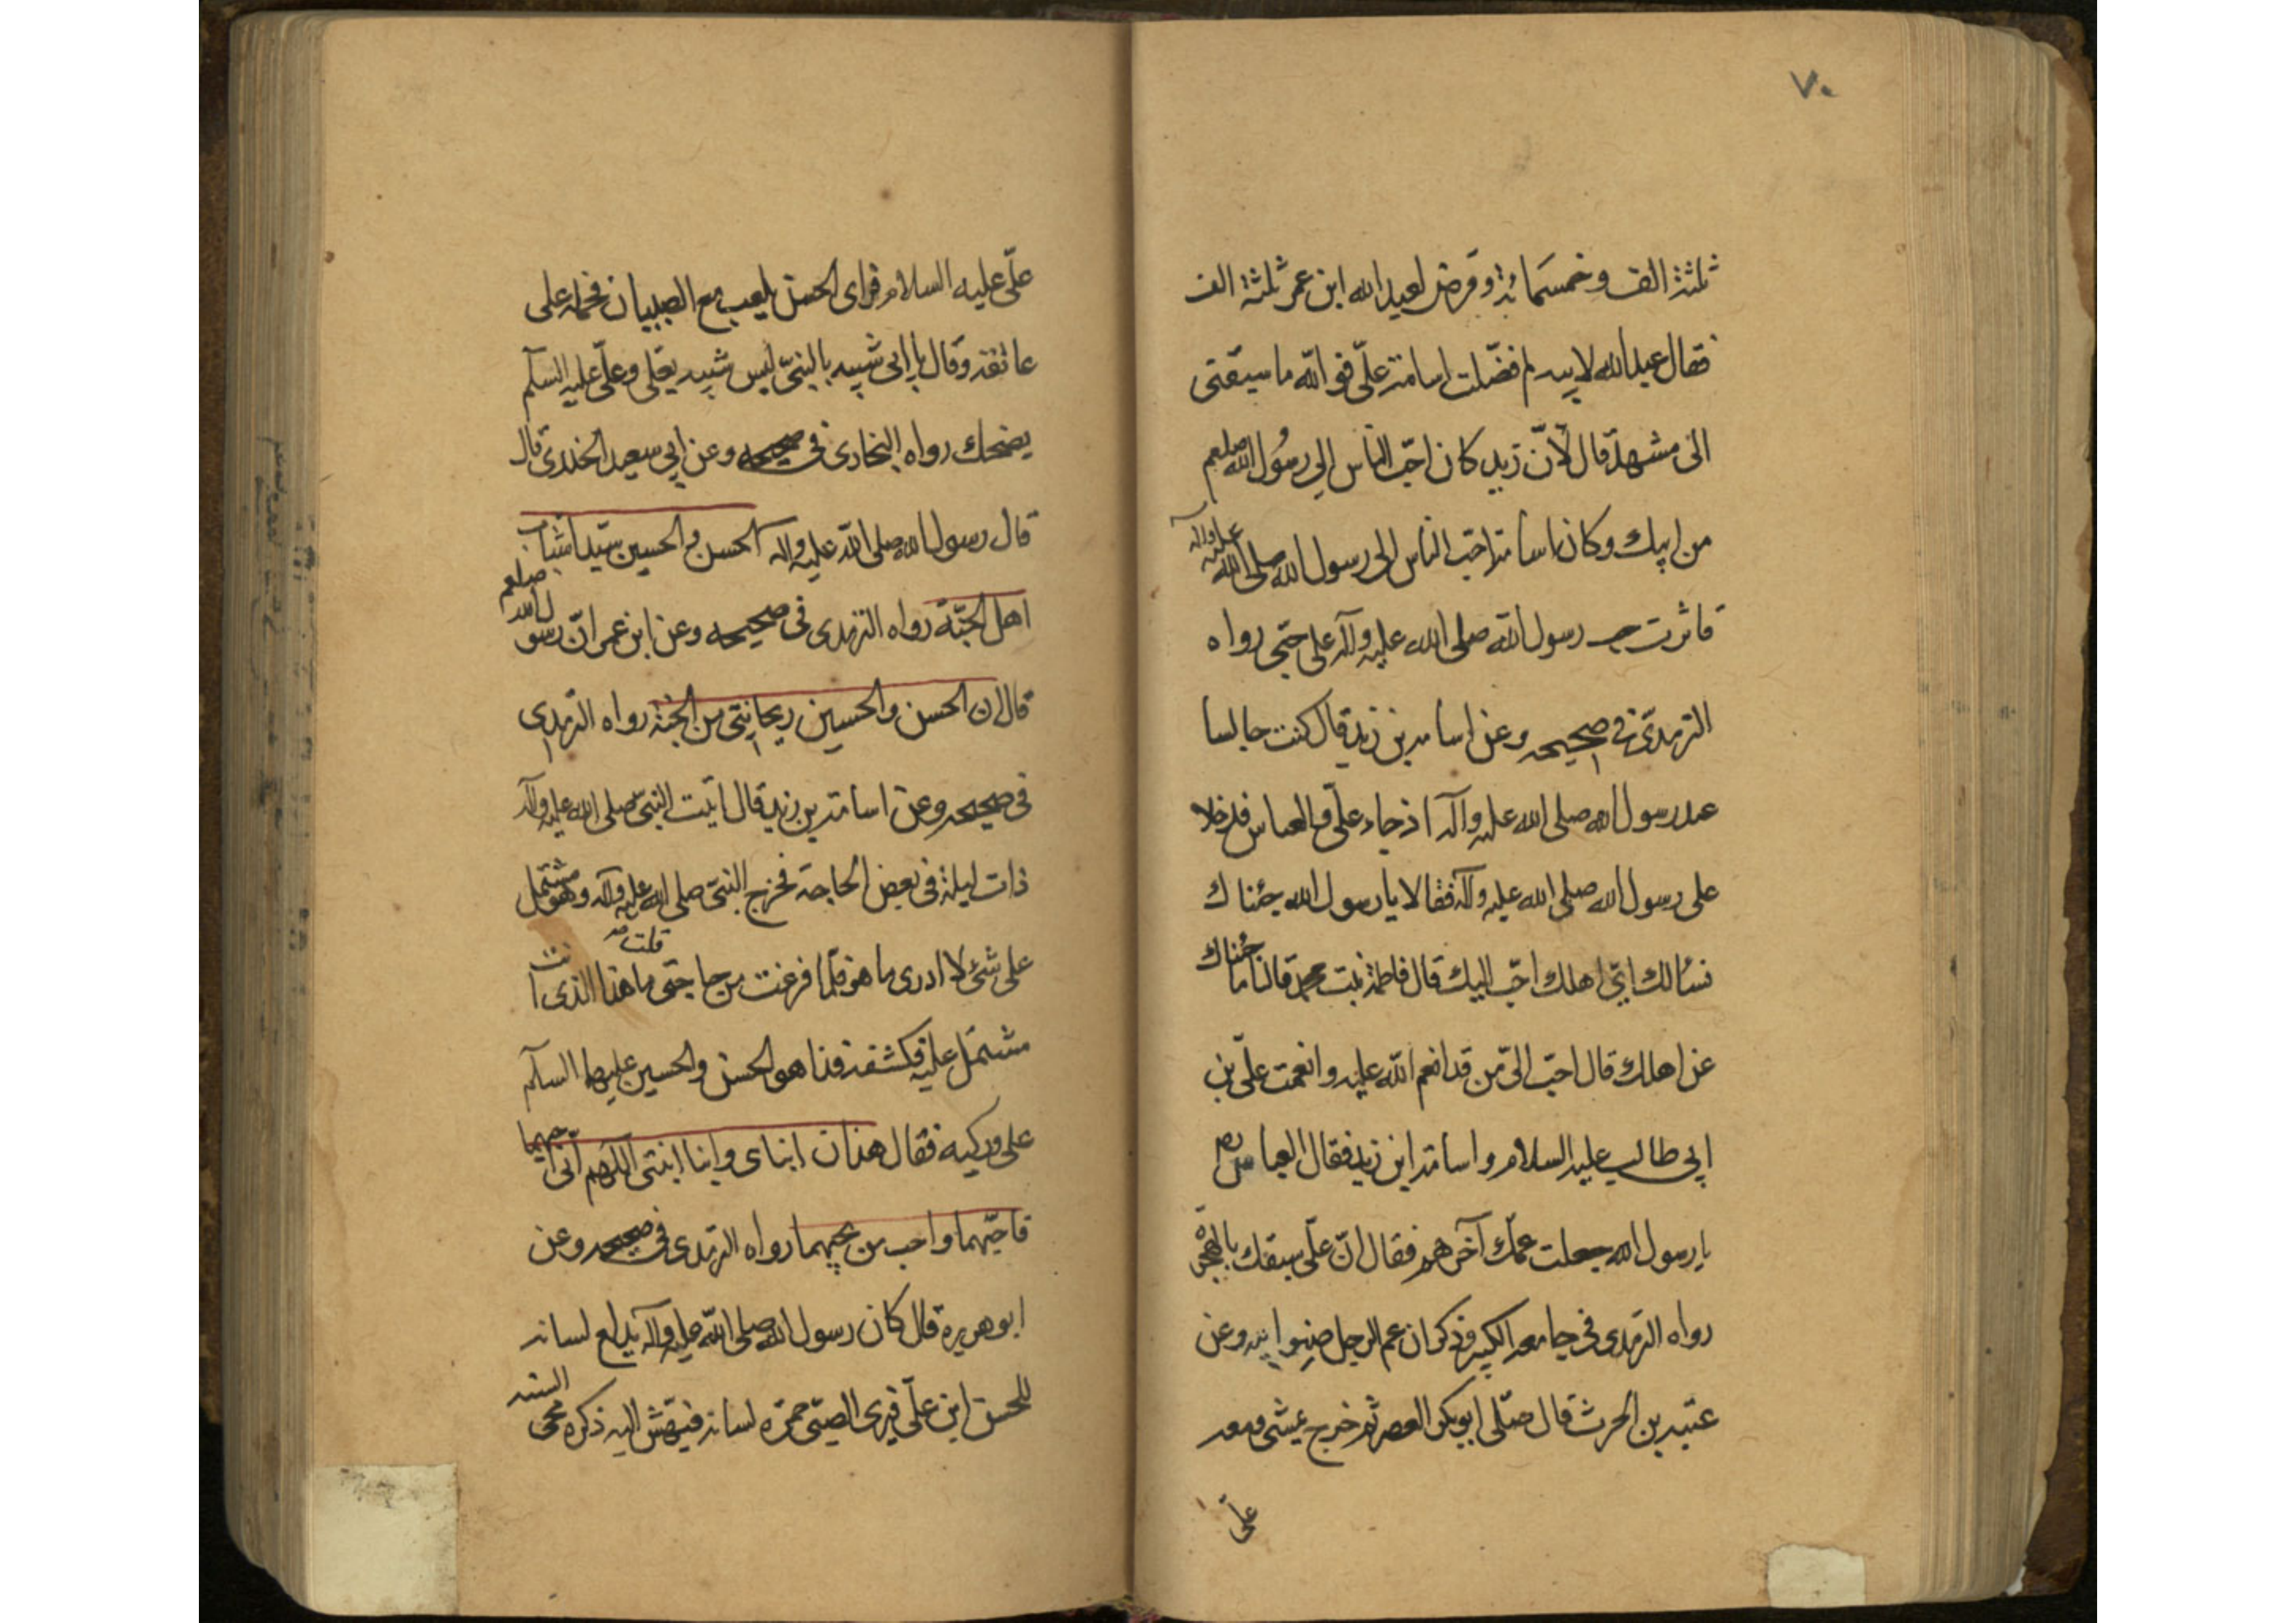 ٧٠
ثلثة الف وخمسمائة وفرض لعبد الله ابن عمر ثلثة الف
فقال عبد الله لابيه لم فضّلت اسامة علىّ فو الله ما سبقنى
الى مشهد قال لأنّ زيد كان احبّ الناس الى رسُول الله صلعم
من ابيك وكان اسامة احبّ الناس الى رسول الله صلى الله عليه وآله
فاثرت حب رسول الله صلى الله عليه وآله على حبّى رواه
الترمذىّ فى صحيحه وعن اسامه بن زيد قال كنت جالسا
عند رسول الله صلى الله عليه وآله اذ جاء علىّ والعباس فدخلا
على رسول الله صلى الله عليه وآله فقالا يا رسول الله جئناك
نسالك اىّ اهلك احبّ اليك قال فاطمة بنت محمد قالا ما جئناك
عن اهلك قال احبّ الىّ من قد انعم الله عليه وانعمت علىّ بن
ابى طالب عليه السلام واسامة ابن زيد فقال العباس رض
يا رسول الله جعلت عمّك آخرهم فقال انّ علىّ سبقك بالهجرة
رواه الترمذى فى جامعه الكبير وذكر ان عم الرجل صنو ابيه وعن
عتبه بن الحرث قال صلّى ابو بكر العصر ثم خرج يمشى ومعه
علىّ
علىّ عليه السلام فراى الحسن يلعب مع الصبيان فحمله على
عاتقه وقال بابى شبيه بالنبىّ ليس شبيه بعلى وعلىّ عليه السلم
يضحك رواه البخارى فى صحيحه وعن ابى سعيد الخدرى قال
قال رسول الله صلى الله عليه واله الحسن والحسين سيّدا شباب
اهل الجنّة رواه الترمذى فى صحيحه وعن ابن عمر انّ رسول الله صلعم
قال ان الحسن والحسين ريحانتى من الجنة رواه الترمذى
فى صحيحه وعن اسامة بن زيد قال اتيت النبىّ صلى الله عليه وآله
ذات ليلة فى بعض الحاجة فخرج النبىّ صلى الله عليه وآله وهو مشتمل
على شئ لا ادرى ما هو فلمّا فرغت من حاجتى قلت ما هذا الذى انت
مشتمل عليه فكشفه فذا هو الحسن والحسين عليهما السلم
على وركيه فقال هذان ابناى وابنا ابنتى اللهم انّى احبهما
فاحبّهما واحب من يحبهما رواه الترمذى فى صحيحه وعن
ابو هريرة قال كان رسول الله صلى الله عليه وآله يدلع لسانه
للحسن ابن علىّ فيرى الصبىّ حمرّه لسانه فيهش اليه ذكره محى السنه